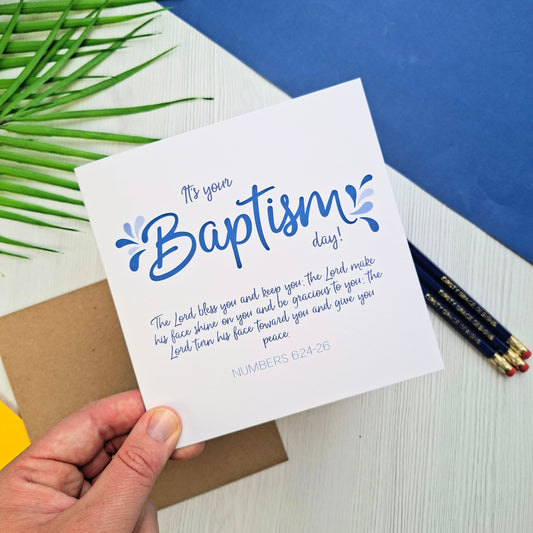 It's your
Baptism
day!
The Lord bless you and keep you; the Lord make
his face shine on you and be gracious to you; the
Lord turn his face toward you and give you
peace.
NUMBERS 6:24-26